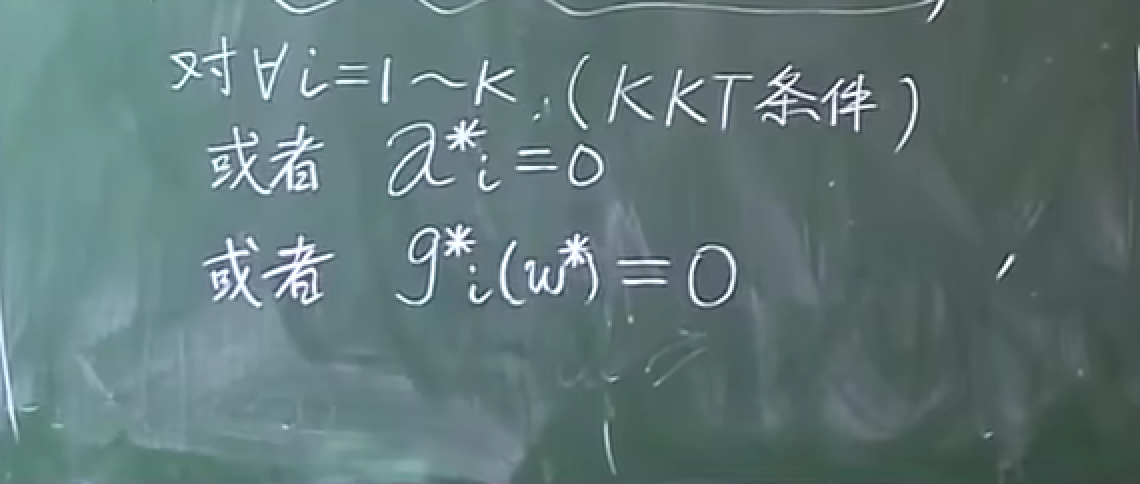 对∀i=1~K.(KKT条件)
或者 α*i=0
或者 g*i(w*)=0